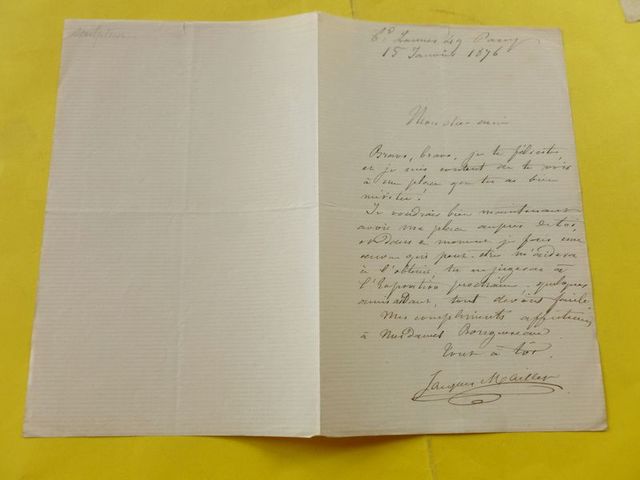 sculpteur
Bd Lannes 49 Passy
15 Janvier 1876
Mon cher ami
Bravo, bravo, je te félicite,
et je suis content de te voir
à une place que tu as bien
méritée!
Je voudrais bien maintenant
avoir ma place auprès de toi,
et dans ce moment je fais une
œuvre qui peut-être m'aidera
à l'obtenir, tu en jugeras à
l'Exposition prochaine. quelques
amis aidant, tout devient facile.
Mes compliments affectueux
à Mesdames Bouguereau
Tout à toi
Jacques Maillet